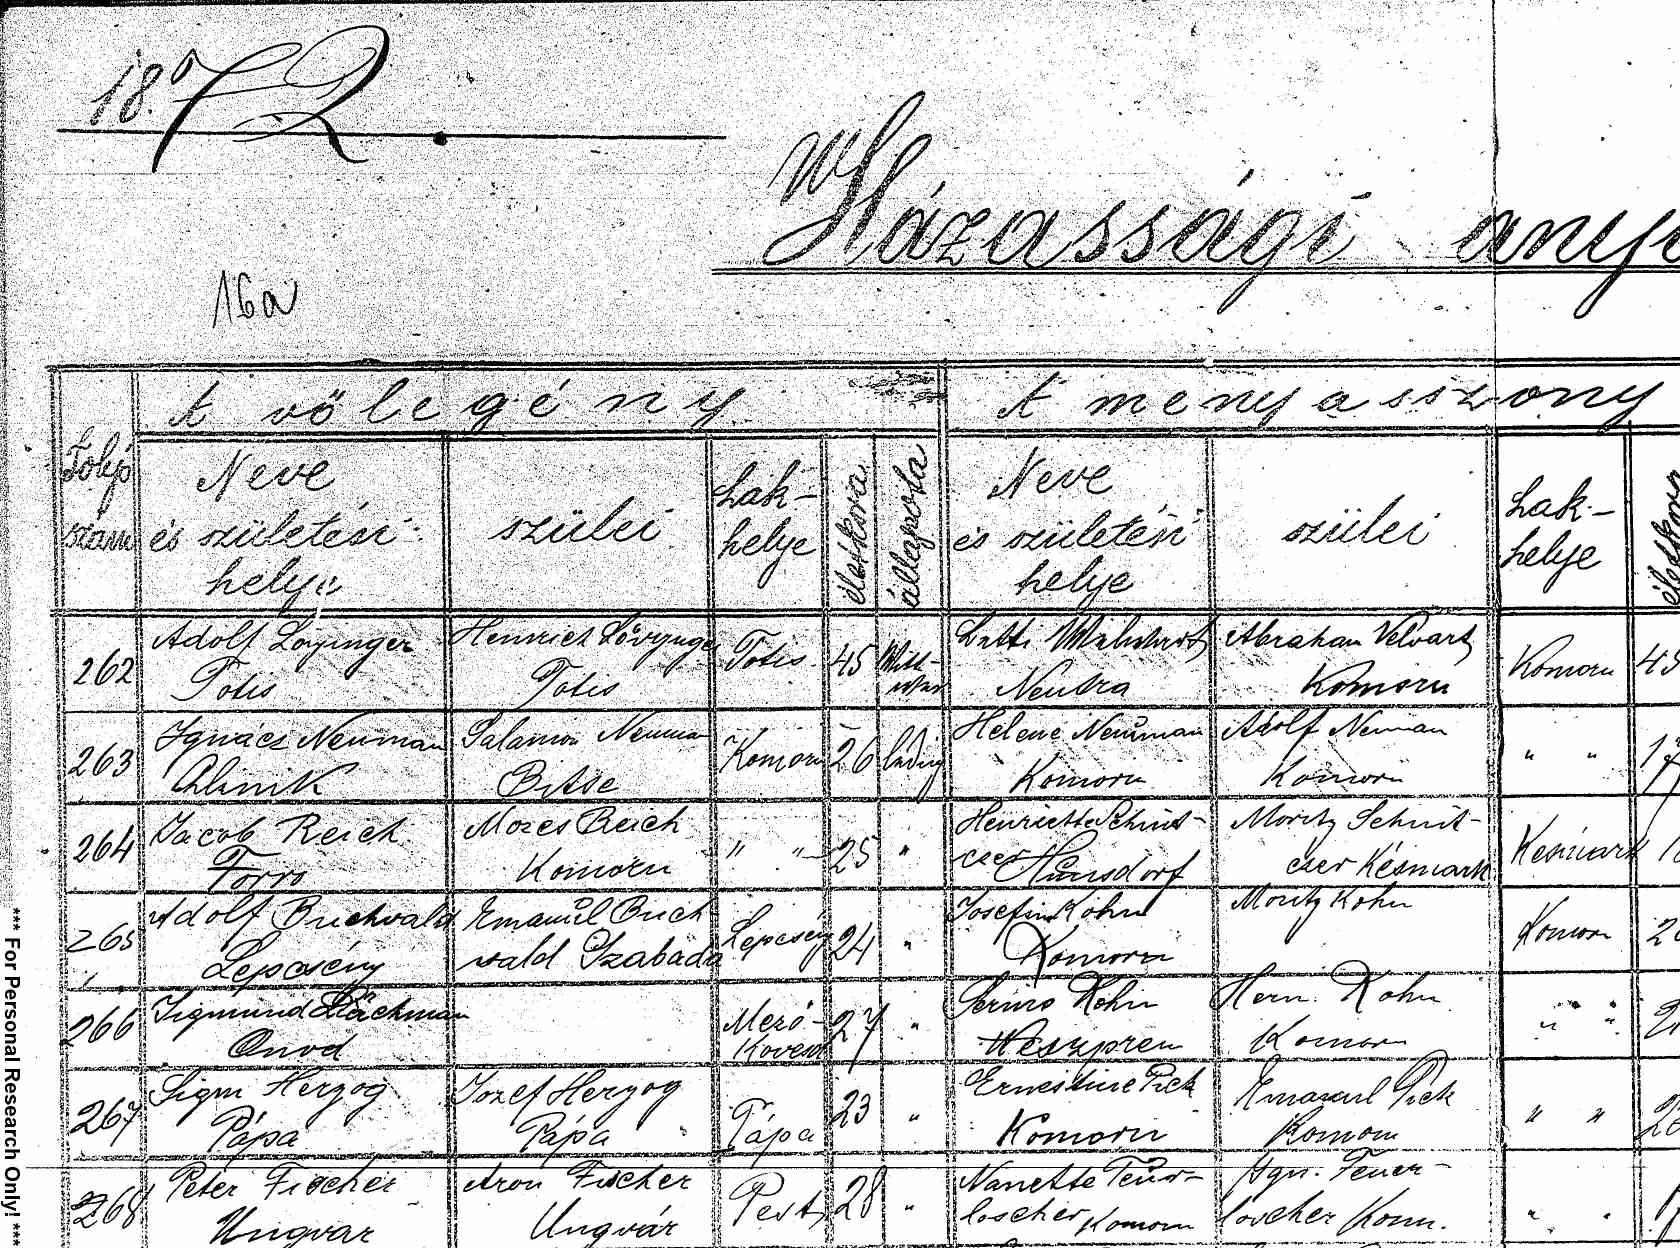 1872.
Házassági
16a
A vőlegény
A menyasszony
Folyó
szám
Neve
és születési
helye
szülei
Lak-
helye
életkora
állapota
Neve
és születési
helye
szülei
Lak-
helye
262
Adolf
Totis
Henrich
Totis
Totis
45
Neutra
Abraham
Komorn
Komorn
263
Ignácz Neuman
Salamon Neuman
Komorn
26
ledig
Helene Neuman
Komorn
Adolf Neuman
Komorn
" "
264
Jacob Reich
Mozes Reich
Komorn
" "
25
"
Henriette Schmit-
czer Hunsdorf
Moritz Schmit-
czer Késmark
Kesmark
265
Adolf Buchvald
Lepcsény
Emanuel Buch
vald Szabada
Lepcsény
24
"
Josefin Kohn
Komorn
Moritz Kohn
Komorn
266
Sigmund
Onod
Mező-
Kövesd
27
"
Kohn
Weszprem
Hern. Kohn
Komorn
" "
267
Sigm Herzog
Pápa
Jozef Herzog
Pápa
Pápa
23
"
Ernestine Pick
Komorn
Emanuel Pick
Komorn
" "
268
Peter Fischer
Ungvar
Aron Fischer
Ungvár
Pest
28
"
Nanette Feuer-
loscher Komorn
Ign. Feuer-
loscher Kom.
" "
*** For Personal Research Only! ***